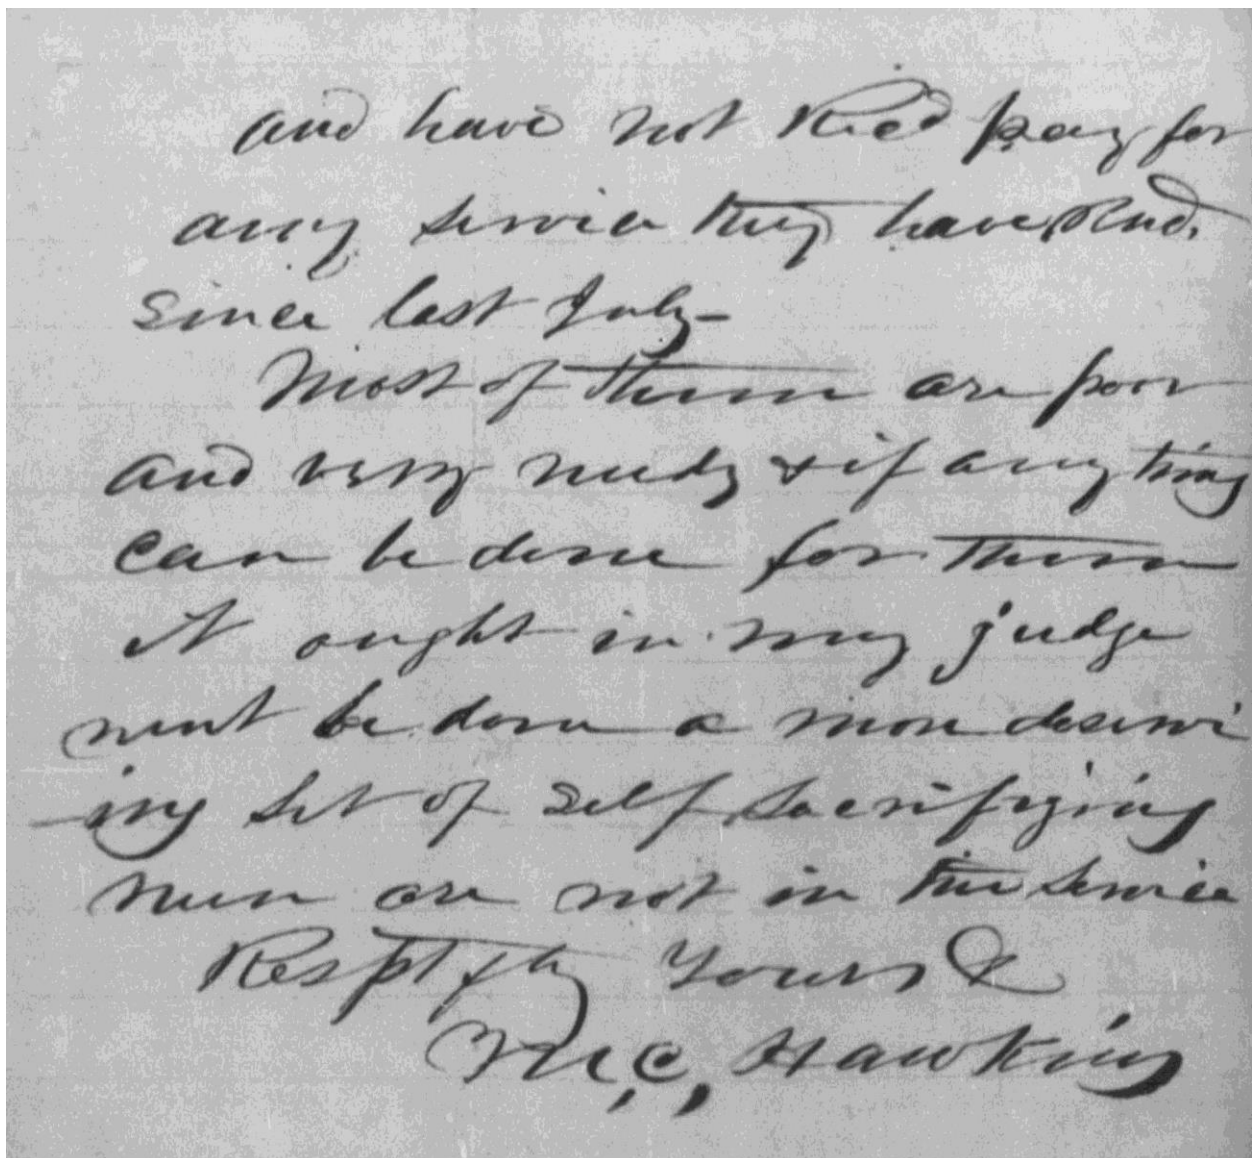 and have not Rec'd pay for
any service they have Rend.
since last July -
Most of them are poor
and very needy & if any thing
can be done for them
it ought in my judge
ment be done a more deservi
ing set of self sacrifizing
men are not in the service
Resptfly Yours &
M, C, Hawkins